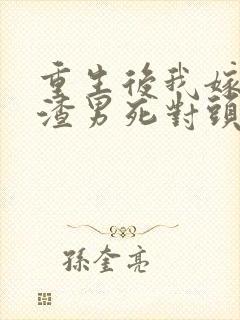 重生後我嫁
渣男死對頭
孫奎亮